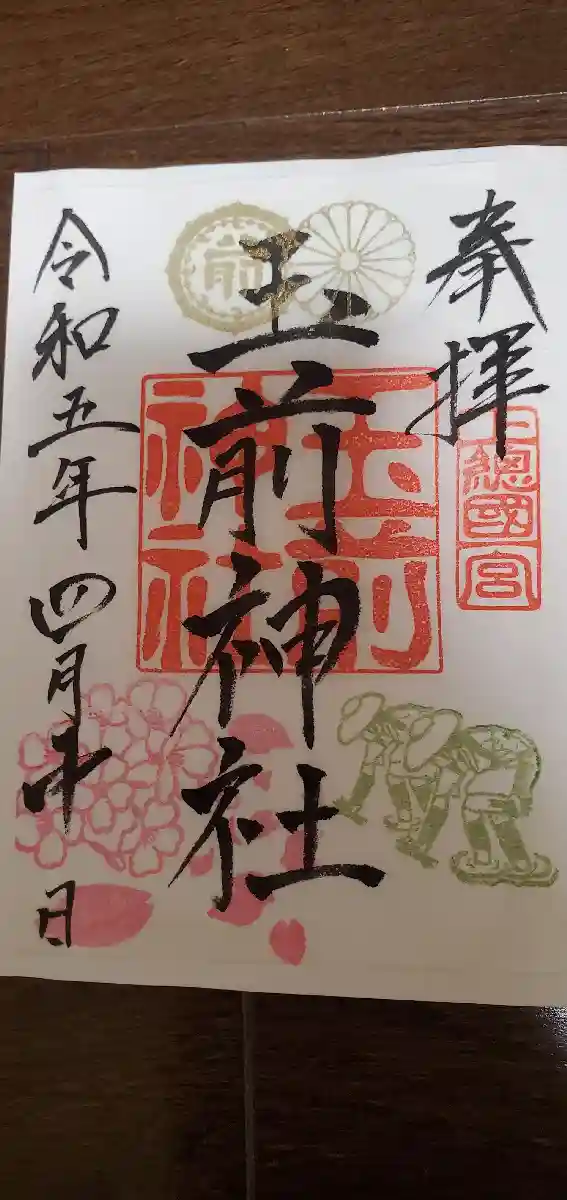 奉拝
上總國一宮
玉前神社
玉前
神社
前
令和五年四月 日